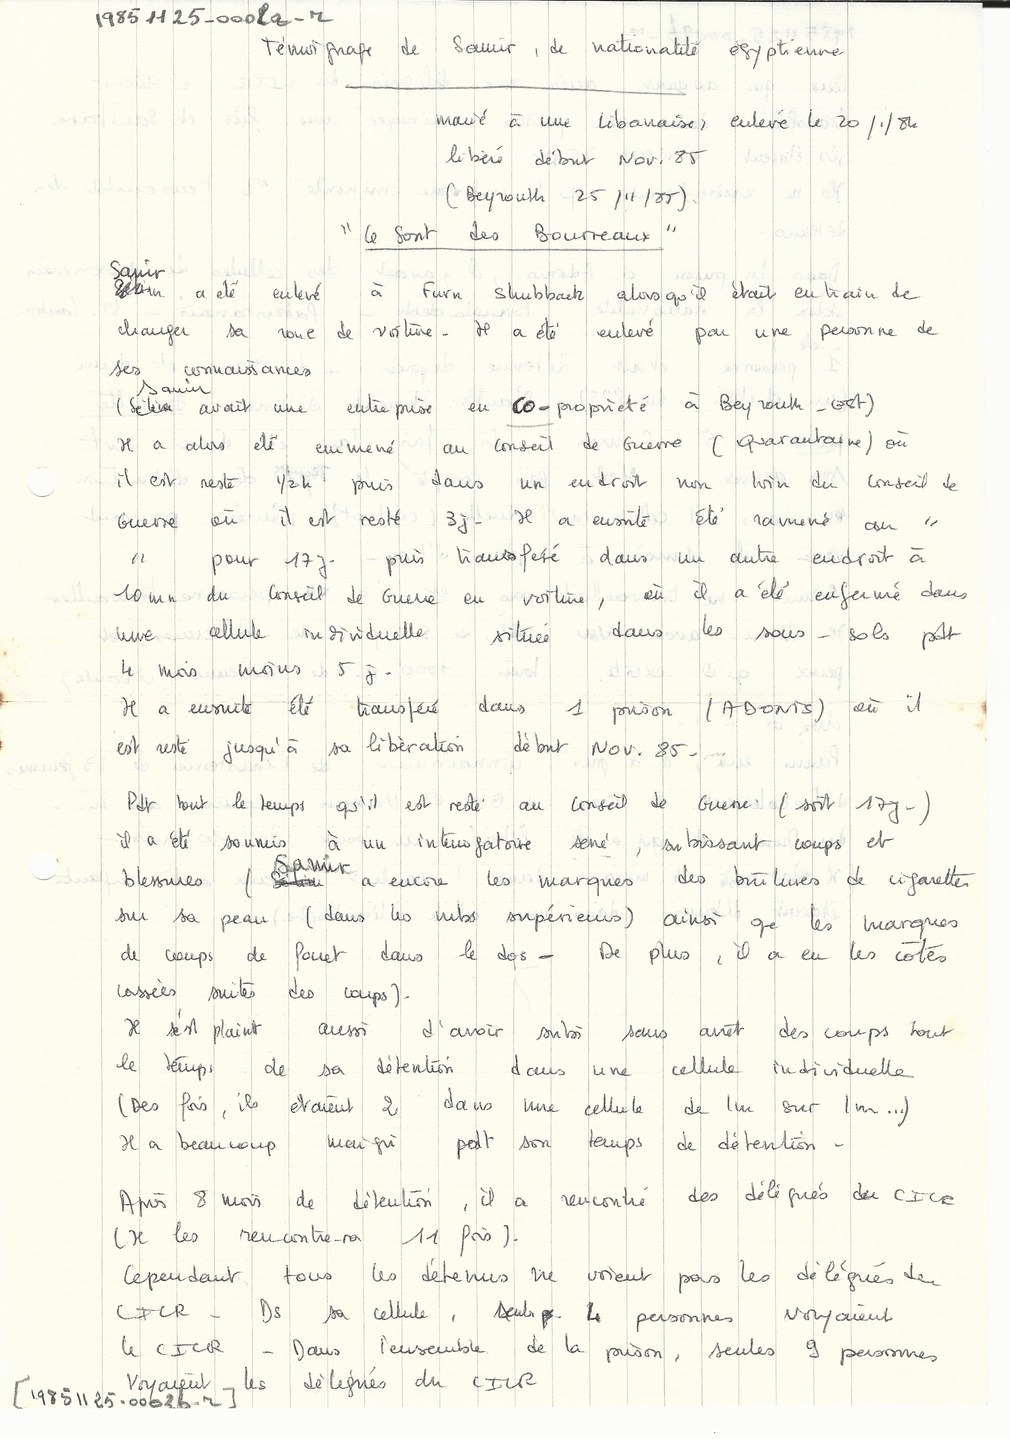 19851125-0002a-r
Témoignage de Samir, de nationalité égyptienne
marié à une Libanaise, enlevé le 20/1/84
libéré début Nov. 85
(Beyrouth 25/11/85).
"Ce sont des Bourreaux"
Samir
a été enlevé à Furn Shubback alors qu'il était en train de
changer sa roue de voiture - Il a été enlevé par une personne de
ses connaissances
Samir
( avait une entreprise en co-propriété à Beyrouth-est)
Il a alors été emmené au Conseil de Guerre (Quarantaine) où
il est resté 1/2h puis dans un endroit non loin du Conseil de
Guerre où il est resté 3j- Il a ensuite été ramené au "
" pour 17j. puis transféré dans un autre endroit à
10mn du Conseil de Guerre en voiture, où il a été enfermé dans
une cellule individuelle située dans les sous-sols pdt
4 mois moins 5j.
Il a ensuite été transféré dans 1 prison (ADONIS) où il
est resté jusqu'à sa libération début Nov. 85-
Pdt tout le temps qu'il est resté au Conseil de Guerre (soit 17j-)
il a été soumis à un interrogatoire serré, subissant coups et
Samir
blessures ( a encore les marques des brûlures de cigarettes
sur sa peau (dans les mbs supérieurs) ainsi qe les marques
de coups de fouet dans le dos - De plus, il a eu les côtes
cassées suites des coups).
Il s'est plaint aussi d'avoir subi sans arrêt des coups tout
le temps de sa détention dans une cellule individuelle
(Des fois, ils étaient 2 dans une cellule de 1m sur 1m...)
Il a beaucoup maigri pdt son temps de détention -
Après 8 mois de détention, il a rencontré des délégués du CICR
(Il les rencontre-ra 11 fois).
Cependant tous les détenus ne voient pas les délégués du
CICR - Ds sa cellule, 4 personnes voyaient
le CICR - Dans l'ensemble de la prison, seules 9 personnes
voyaient les délégués du CICR
[19851125-0002b-r]